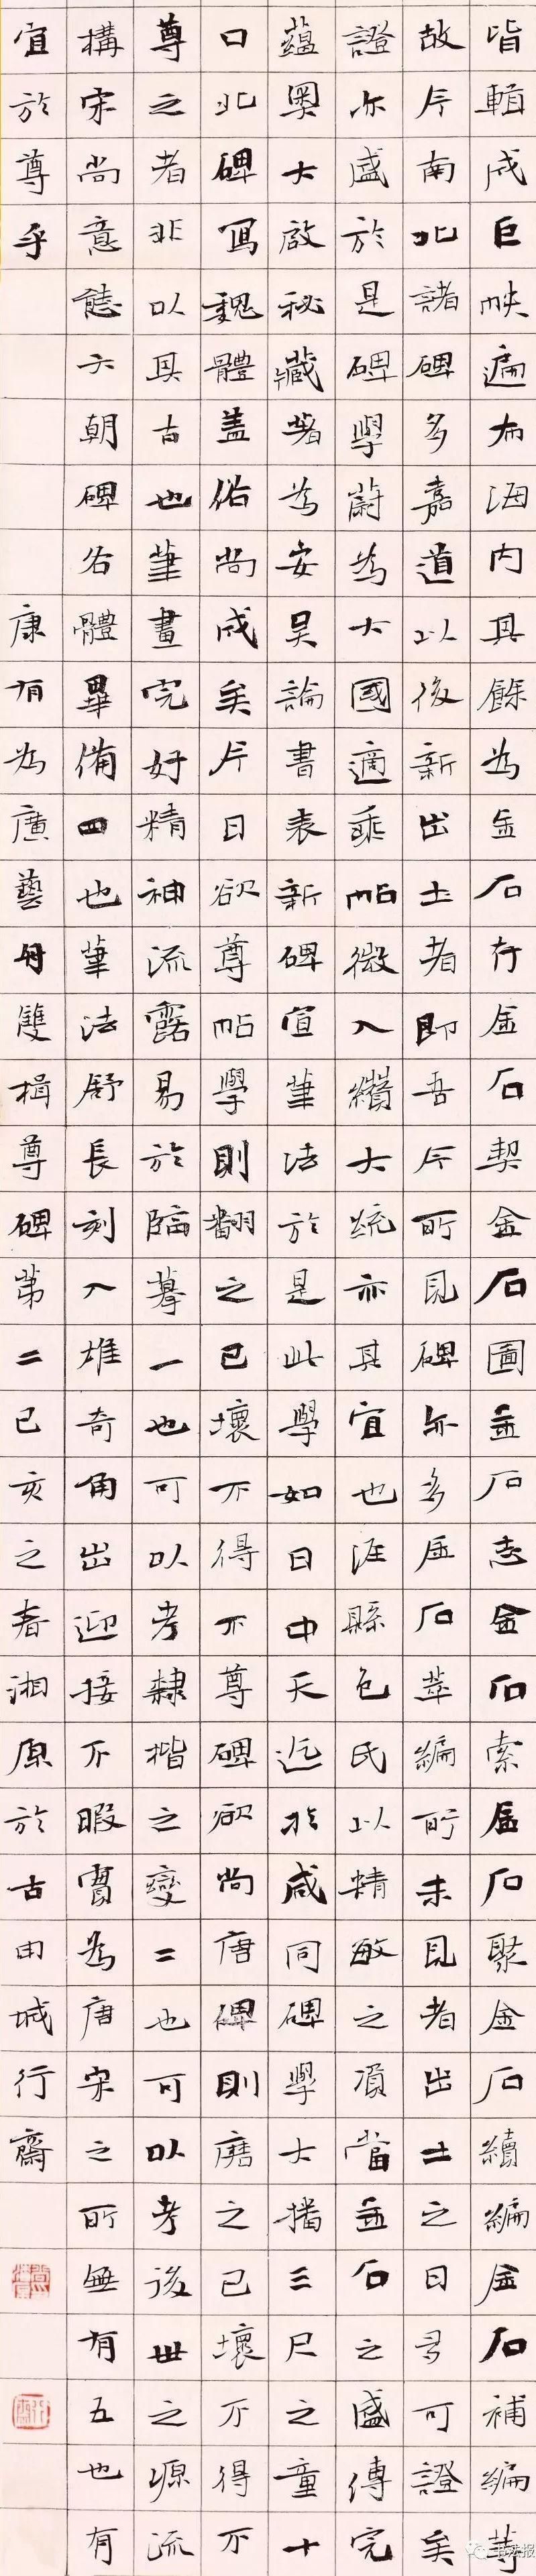 皆輯成巨帙遍布海内其餘為金石存金石契金石圖金石志金石索金石聚金石續編金石補編等
故今南北諸碑多嘉道以後新出土者即吾今所見碑亦多金石萃編所未見者出土之日多可證矣
證亦盛於是碑學蔚為大國適乘帖微入纘大統亦其宜也涇縣包氏以精敏之資當金石之盛傳完
蘊奧大啟秘藏著為安吳論書表新碑宣筆法於是此學如日中天迄於咸同碑學大播三尺之童十
口北碑寫魏體盖俗尚成矣今日欲尊帖學則翻之已壞不得不尊碑欲尚唐碑則磨之已壞不得不
尊之者非以其古也筆畫完好精神流露易於臨摹一也可以考隸楷之變二也可以考後世之源流
構宋尚意態六朝碑各體畢備四也筆法舒長刻入雄奇角出迎接不暇實為唐宋之所無有五也有
宜於尊乎 康有為廣藝舟雙楫尊碑第二己亥之春湘原於古田城行齋
书法报